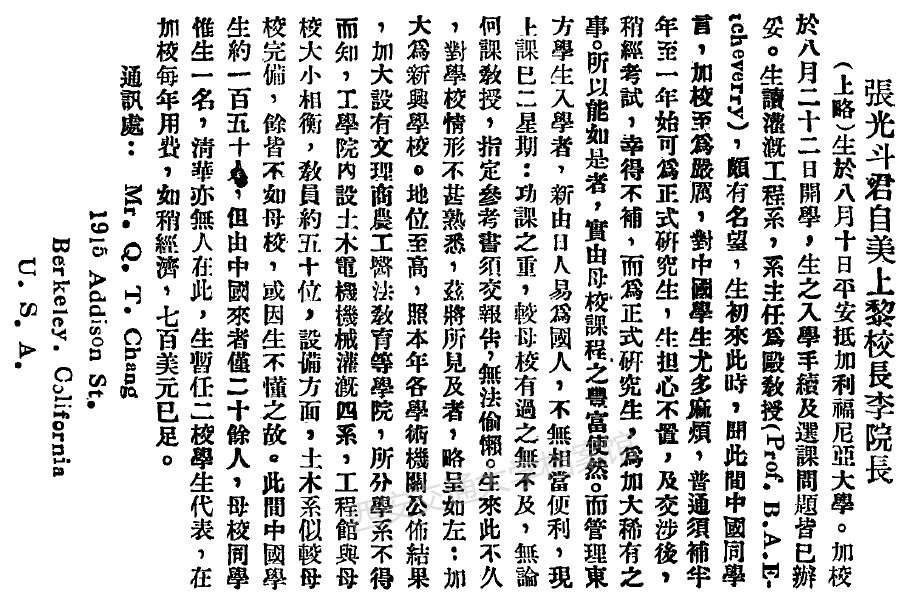 張光斗君自美上黎校長李院長
(上略)生於八月十日平安抵加利福尼亞大學。加校
於八月二十二日開學，生之入學手續及選課問題皆已辦
妥。生讀灌漑工程系，系主任爲殿敎授(Prof. B. A. E-
tcheverry)，頗有名望，生初來此時，聞此間中國同學
言，加校至爲嚴厲，對中國學生尤多麻煩，普通須補半
年至一年始可爲正式研究生，生担心不置，及交涉後，
稍經考試，幸得不補，而爲正式研究生，爲加大稀有之
事。所以能如是者，實由母校課程之豐富使然。而管理東
方學生入學者，新由日人易爲國人，不無相當便利，現
上課已二星期：功課之重，較母校有過之無不及，無論
何課敎授，指定參考書須交報告，無法偷懶。生來此不久
，對學校情形不甚熟悉，茲將所見及者，略呈如左：加
大爲新興學校。地位至高，照本年各學術機關公佈結果
，加大設有文理商農工醫法敎育等學院，所分學系不得
而知，工學院內設土木電機機械灌漑四系，工程館與母
校大小相衡，敎員約五十位，設備方面，土木系似較母
校完備，餘皆不如母校，或因生不懂之故。此間中國學
生約一百五十人，但由中國來者僅二十餘人，母校同學
惟生一名，淸華亦無人在此，生暫任二校學生代表，在
加校每年用費，如稍經濟，七百美元已足。
通訊處： Mr. Q. T. Chang
1915 Addison St.
Berkeley. California
U. S. A.